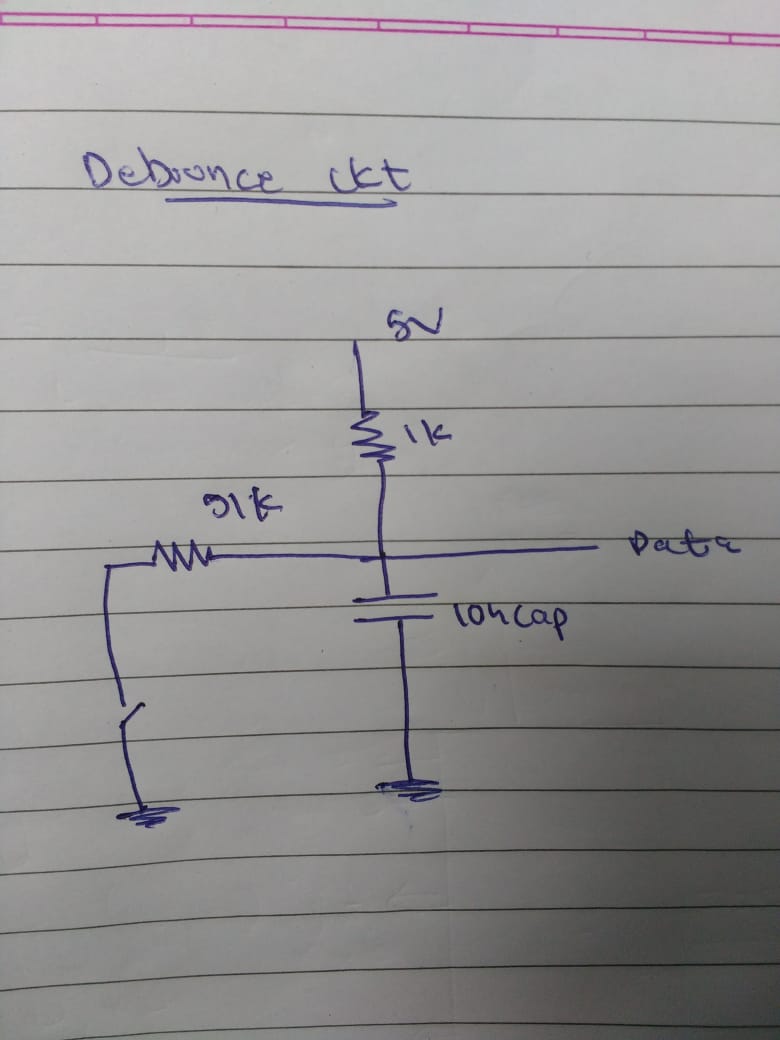 Debounce ckt
5V
1k
91k
Data
10n cap